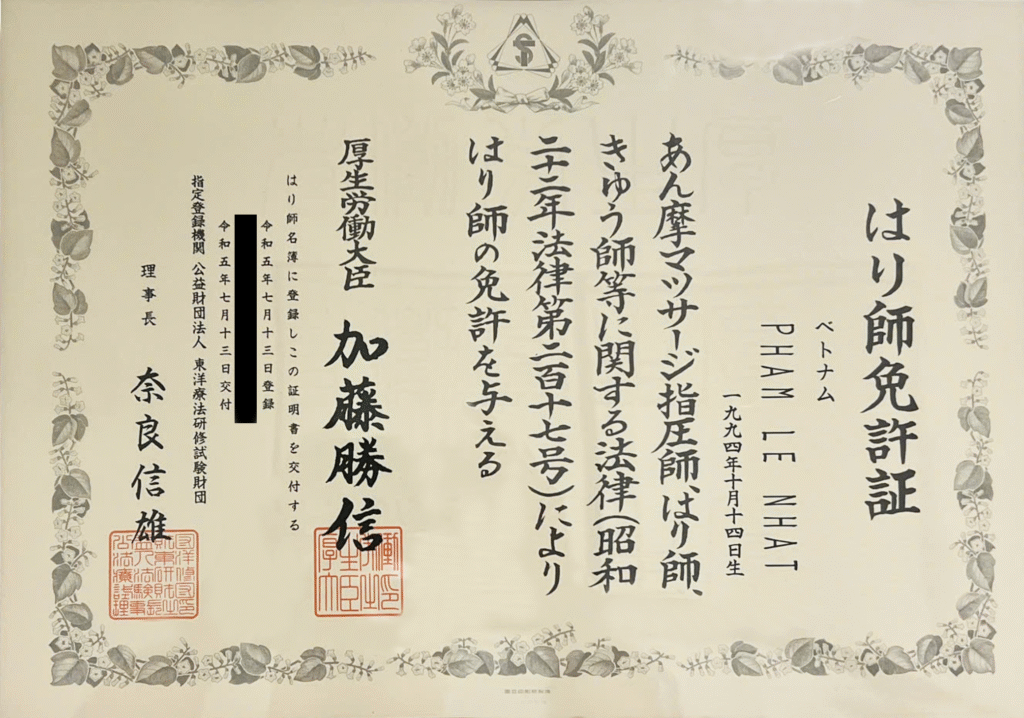 はり師免許証
ベトナム
PHAM LE NHAT
一九九四年十月十四日生
あん摩マツサージ指圧師、はり師、
きゆう師等に関する法律(昭和
二十二年法律第二百十七号)により
はり師の免許を与える
厚生労働大臣 加藤勝信
はり師名簿に登録しこの証明書を交付する
令和五年七月十三日登録
令和五年七月十三日交付
指定登録機関 公益財団法人 東洋療法研修試験財団
理事長 奈良信雄